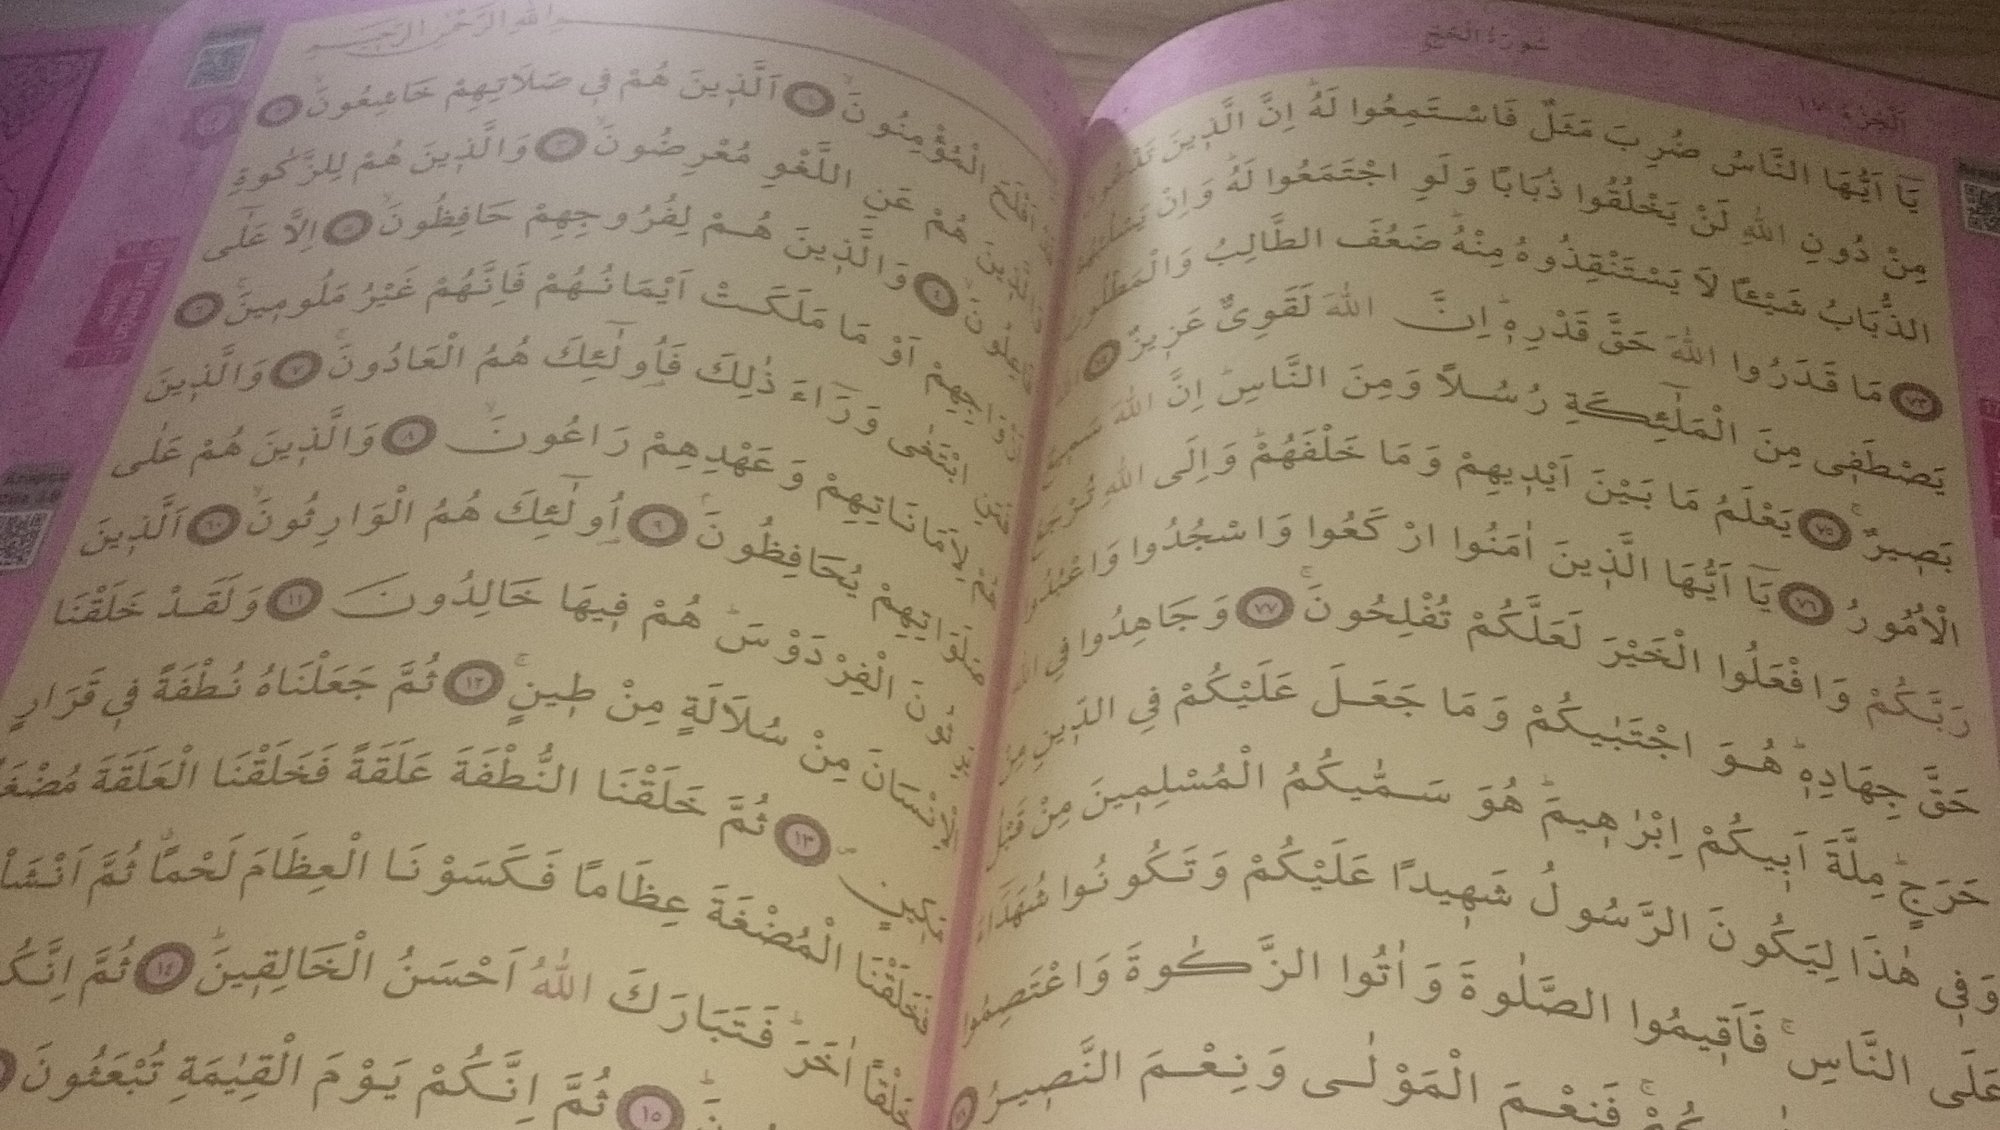 سُورَةُ الْحَجِّ
اَلْجُزْءُ ١٧
يَٓا اَيُّهَا النَّاسُ ضُرِبَ مَثَلٌ فَاسْتَمِعُوا لَهُۜ اِنَّ الَّذ۪ينَ تَدْعُونَ
مِنْ دُونِ اللّٰهِ لَنْ يَخْلُقُوا ذُبَابًا وَلَوِ اجْتَمَعُوا لَهُۜ وَاِنْ يَسْلُبْهُمُ
الذُّبَابُ شَيْـًٔا لَا يَسْتَنْقِذُوهُ مِنْهُۜ ضَعُفَ الطَّالِبُ وَالْمَطْلُوبُ
٧٣ مَا قَدَرُوا اللّٰهَ حَقَّ قَدْرِه۪ۜ اِنَّ اللّٰهَ لَقَوِىٌّ عَز۪يزٌ ٧٤ اَللّٰهُ
يَصْطَف۪ى مِنَ الْمَلٰٓئِكَةِ رُسُلًا وَمِنَ النَّاسِۜ اِنَّ اللّٰهَ سَم۪يعٌ
بَص۪يرٌۚ ٧٥ يَعْلَمُ مَا بَيْنَ اَيْد۪يهِمْ وَمَا خَلْفَهُمْۜ وَاِلَى اللّٰهِ تُرْجَعُ
الْاُمُورُ ٧٦ يَٓا اَيُّهَا الَّذ۪ينَ اٰمَنُوا ارْكَعُوا وَاسْجُدُوا وَاعْبُدُوا
رَبَّكُمْ وَافْعَلُوا الْخَيْرَ لَعَلَّكُمْ تُفْلِحُونَۚ ٧٧ وَجَاهِدُوا فِي اللّٰهِ
حَقَّ جِهَادِه۪ۜ هُوَ اجْتَبٰيكُمْ وَمَا جَعَلَ عَلَيْكُمْ فِي الدّ۪ينِ مِنْ
حَرَجٍۜ مِلَّةَ اَب۪يكُمْ اِبْرٰه۪يمَۜ هُوَ سَمّٰيكُمُ الْمُسْلِم۪ينَ مِنْ قَبْلُ
وَف۪ي هٰذَا لِيَكُونَ الرَّسُولُ شَه۪يدًا عَلَيْكُمْ وَتَكُونُوا شُهَدَٓاءَ
عَلَى النَّاسِۚ فَاَق۪يمُوا الصَّلٰوةَ وَاٰتُوا الزَّكٰوةَ وَاعْتَصِمُوا
فَنِعْمَ الْمَوْلٰى وَنِعْمَ النَّص۪يرُ ٧٨
اللّٰهِ الرَّحْمٰنِ الرَّح۪يمِ
قَدْ اَفْلَحَ الْمُؤْمِنُونَۙ ١ اَلَّذ۪ينَ هُمْ ف۪ي صَلَاتِهِمْ خَاشِعُونَۙ ٢
وَالَّذ۪ينَ هُمْ عَنِ اللَّغْوِ مُعْرِضُونَۙ ٣ وَالَّذ۪ينَ هُمْ لِلزَّكٰوةِ
فَاعِلُونَۙ ٤ وَالَّذ۪ينَ هُمْ لِفُرُوجِهِمْ حَافِظُونَۙ ٥ اِلَّا عَلٰٓى
اَزْوَاجِهِمْ اَوْ مَا مَلَكَتْ اَيْمَانُهُمْ فَاِنَّهُمْ غَيْرُ مَلُوم۪ينَۚ ٦
فَمَنِ ابْتَغٰى وَرَٓاءَ ذٰلِكَ فَاُو۬لٰٓئِكَ هُمُ الْعَادُونَۚ ٧ وَالَّذ۪ينَ
هُمْ لِاَمَانَاتِهِمْ وَعَهْدِهِمْ رَاعُونَۙ ٨ وَالَّذ۪ينَ هُمْ عَلٰى
صَلَوَاتِهِمْ يُحَافِظُونَۢ ٩ اُو۬لٰٓئِكَ هُمُ الْوَارِثُونَۙ ١٠ اَلَّذ۪ينَ
يَرِثُونَ الْفِرْدَوْسَۜ هُمْ ف۪يهَا خَالِدُونَ ١١ وَلَقَدْ خَلَقْنَا
الْاِنْسَانَ مِنْ سُلَالَةٍ مِنْ ط۪ينٍۚ ١٢ ثُمَّ جَعَلْنَاهُ نُطْفَةً ف۪ي قَرَارٍ
مَك۪ينٍۖ ١٣ ثُمَّ خَلَقْنَا النُّطْفَةَ عَلَقَةً فَخَلَقْنَا الْعَلَقَةَ مُضْغَةً
فَخَلَقْنَا الْمُضْغَةَ عِظَامًا فَكَسَوْنَا الْعِظَامَ لَحْمًاۗ ثُمَّ اَنْشَأْ
خَلْقًا اٰخَرَۜ فَتَبَارَكَ اللّٰهُ اَحْسَنُ الْخَالِق۪ينَۜ ١٤ ثُمَّ اِنَّكُ
١٥ ثُمَّ اِنَّكُمْ يَوْمَ الْقِيٰمَةِ تُبْعَثُونَ